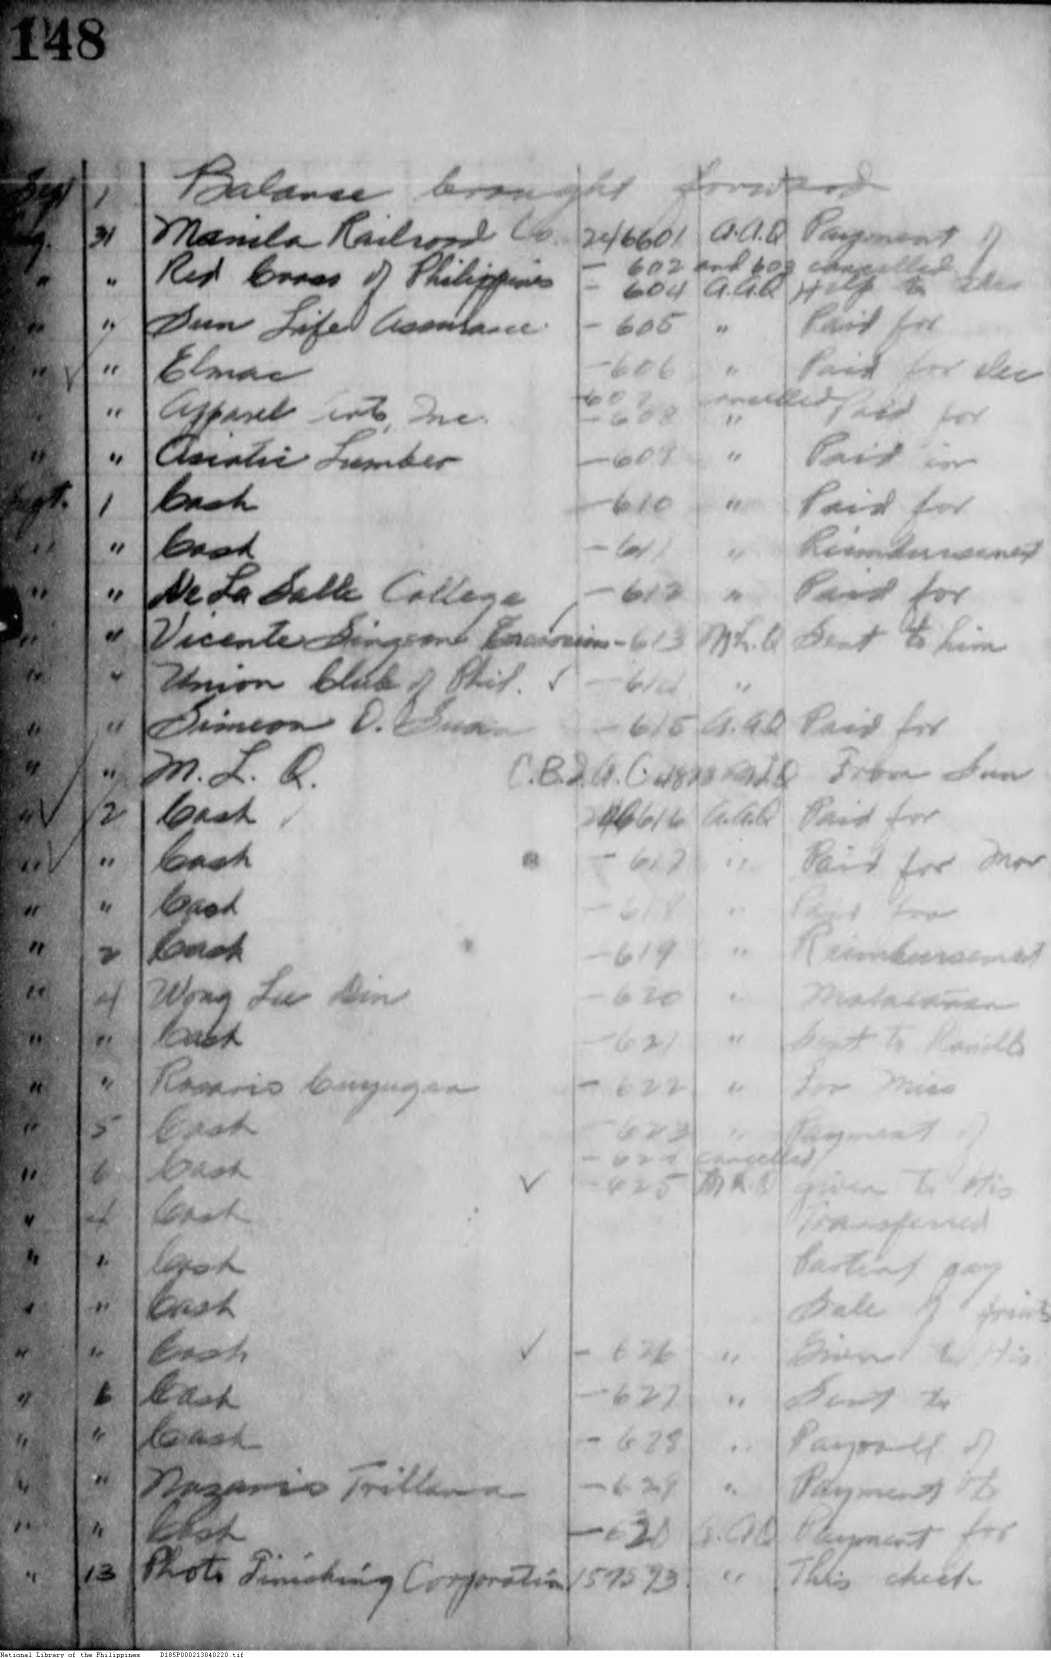 148
Sept 1 Balance brought forward
Aug. 31 Manila Railroad Co. 246601 A.A.Q Payment of
- 602 and 603 cancelled
" " Red Cross of Philippines - 604 A.A.Q Help to
" " Sun Life Assurance - 605 " Paid for
" " Elmac - 606 " Paid for
- 607 cancelled
" " Apparel Arts, Inc. - 608 " Paid for
" " Asiatic Lumber - 609 " Paid in
Sept. 1 Cash - 610 " Paid for
" " Cash - 611 " Reimbursement
" " De La Salle College - 612 " Paid for
" " Vicente Singson Encarnacion - 613 M.L.Q Sent to him
" " Union Club of Phil. ✓ - 614 "
" " Simeon O. - 615 A.A.Q Paid for
" " M. L. Q. M.L.Q From Sun
" 2 Cash 246616 A.A.Q Paid for
" " Cash - 617 " Paid for
" " Cash - 618 " Paid for
" 2 Cash - 619 " Reimbursement
" 4 Wong Lee Din - 620 " Malacañan
" " Cash - 621 " Sent to
" " Rosario Cuyugan - 622 " For Miss
" 5 Cash - 623 " Payment of
- 624 cancelled
" 6 Cash ✓ - 625 M.L.Q given to His
" 4 Cash Transferred
" " Cash Partial pay
" " Cash Sale of
" " Cash ✓ - 626 " Given to His
" 6 Cash - 627 " Sent to
" " Cash - 628 " Payroll of
" " Nazario Trillana - 629 " Payment to
" " Cash - 630 A.A.Q Payment for
" 13 Photo Finishing Corporation 157573 " This check
National Library of the Philippines D185P000213040220.tif